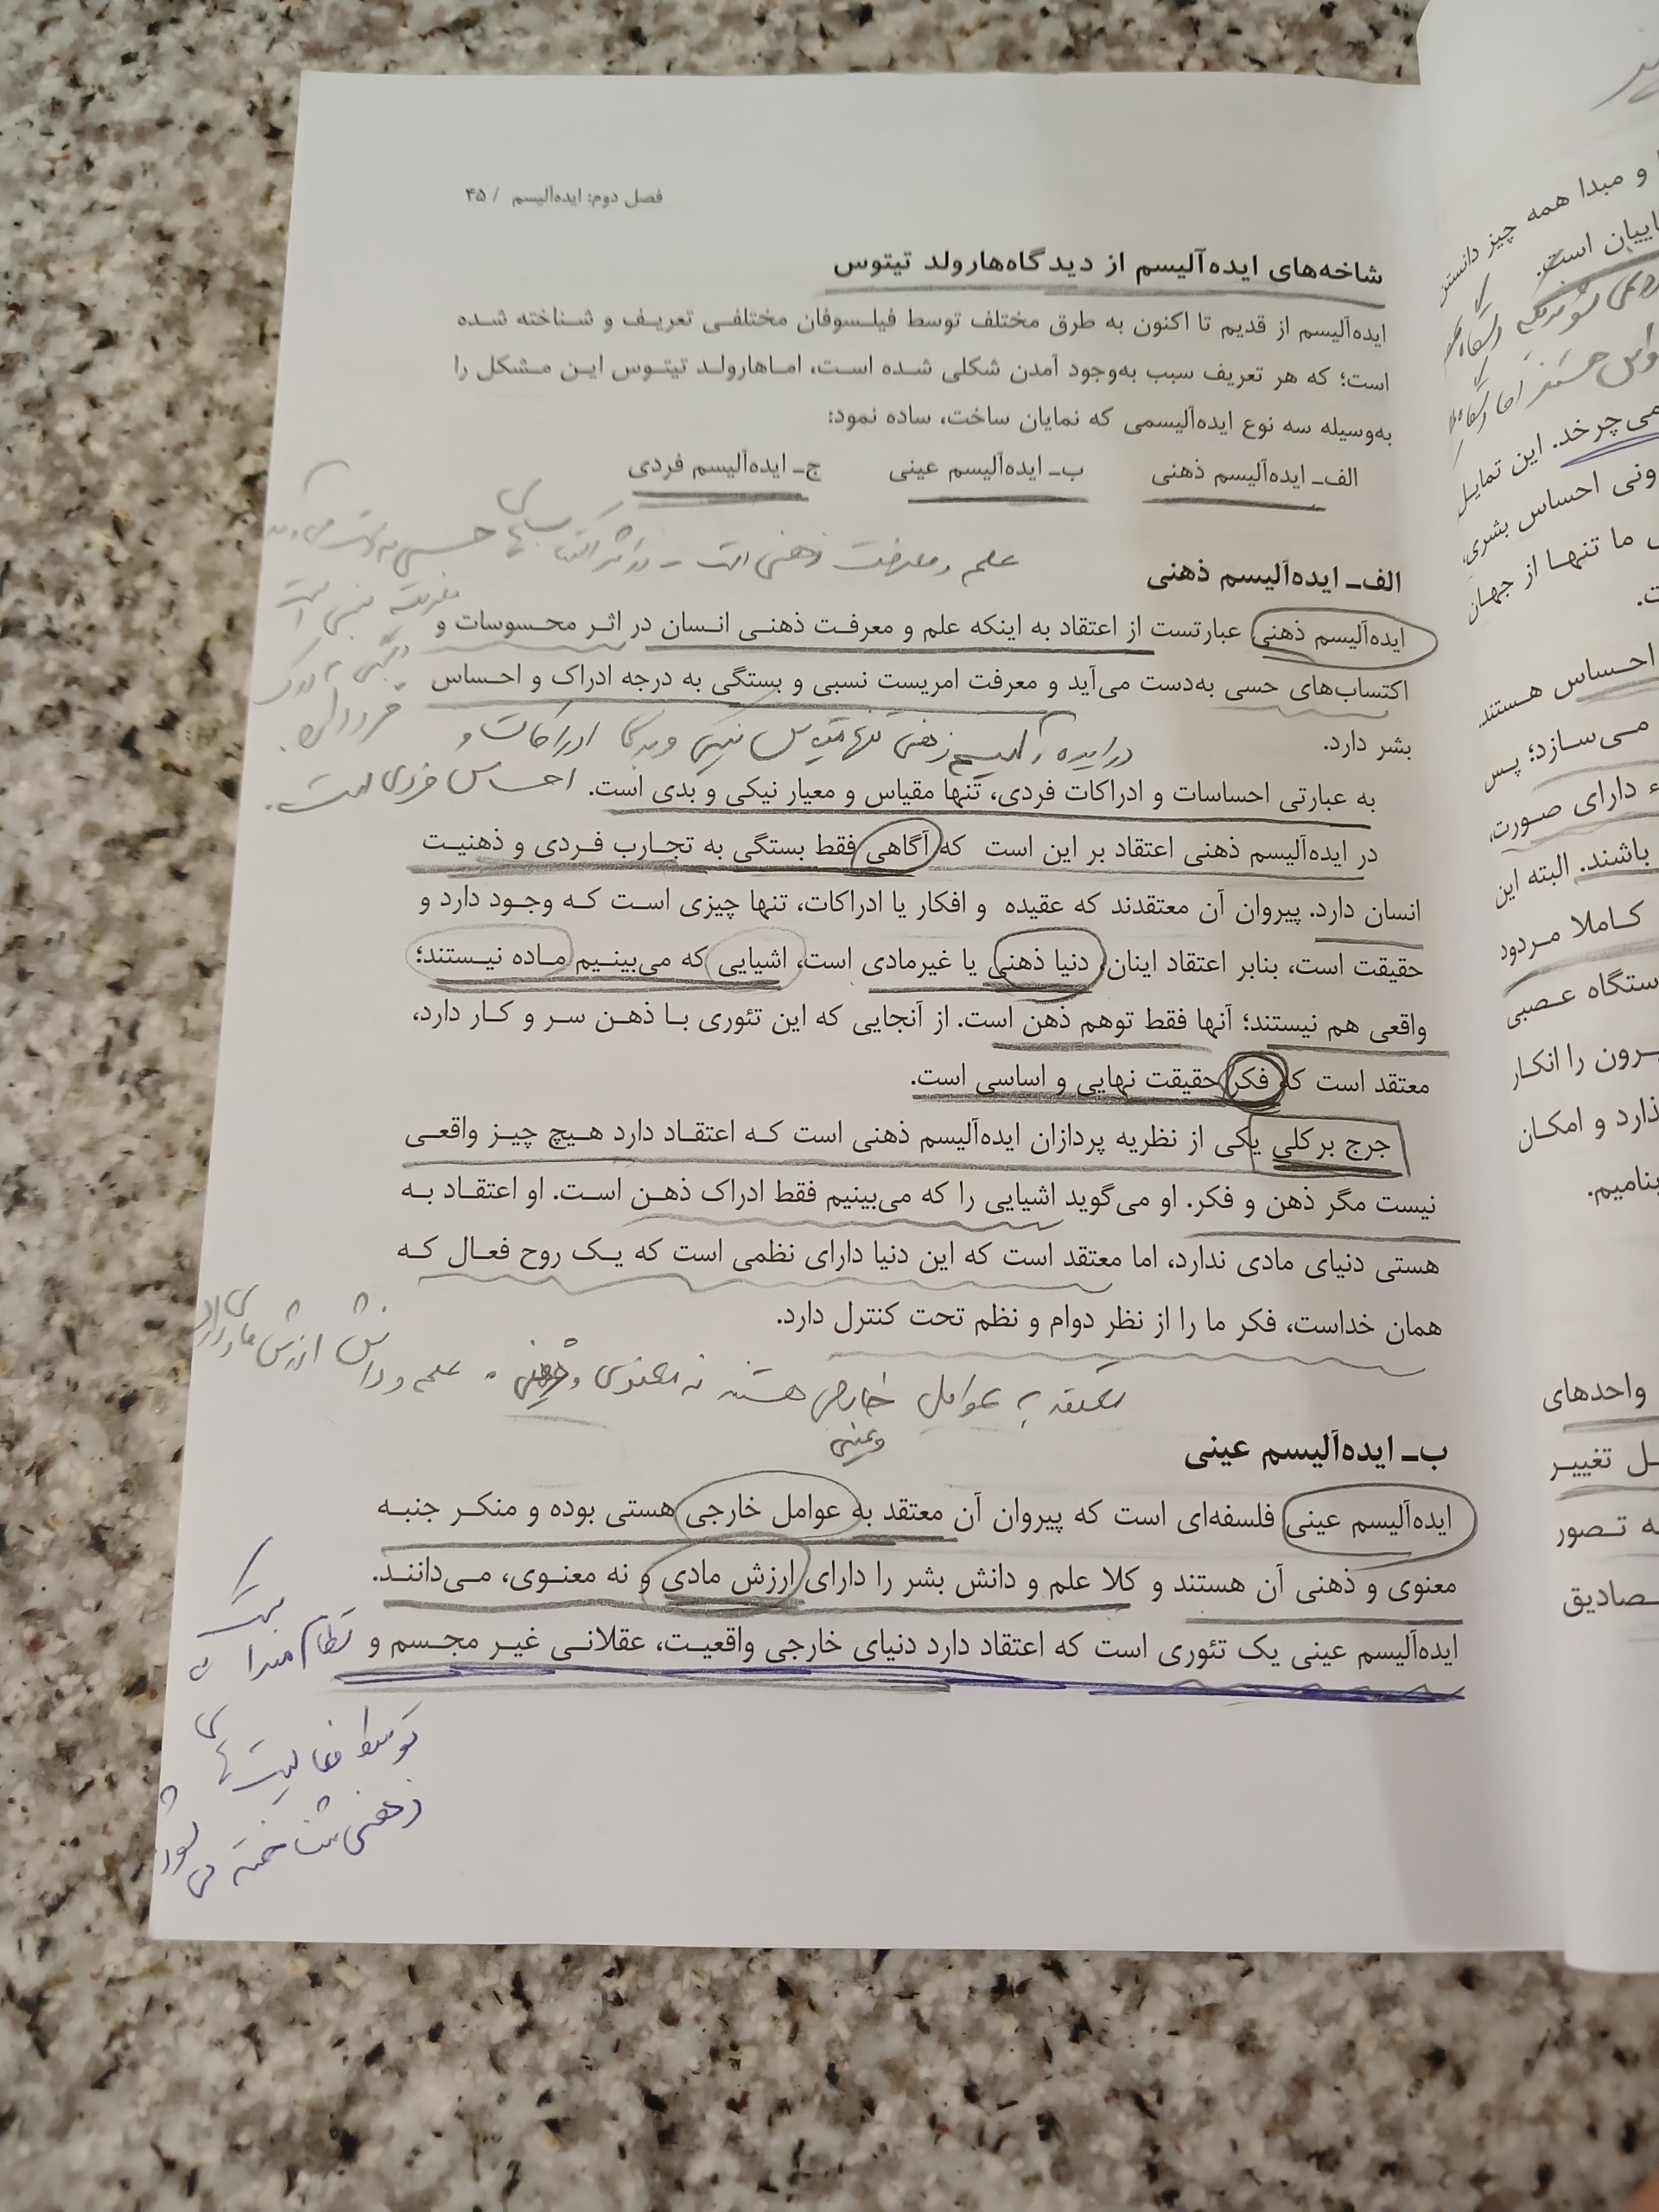 فصل دوم: ایده‌آلیسم / ۴۵
شاخه‌های ایده‌آلیسم از دیدگاه‌هارولد تیتوس
ایده‌آلیسم از قدیم تا اکنون به طرق مختلف توسط فیلسوفان مختلفی تعریف و شناخته شده
است؛ که هر تعریف سبب به‌وجود آمدن شکلی شده است، اماهارولد تیتوس این مشکل را
به‌وسیله سه نوع ایده‌آلیسمی که نمایان ساخت، ساده نمود:
الف_ ایده‌آلیسم ذهنی ب_ ایده‌آلیسم عینی ج_ ایده‌آلیسم فردی
علم و معرفت ذهنی است _ در اثر اکتساب‌های حسی به دست می‌آید
الف_ ایده‌آلیسم ذهنی
معرفت نسبی است
ایده‌آلیسم ذهنی عبارتست از اعتقاد به اینکه علم و معرفت ذهنی انسان در اثر محسوسات و
اکتساب‌های حسی به‌دست می‌آید و معرفت امریست نسبی و بستگی به درجه ادراک و احساس
بشر دارد.
در ایده‌آلیسم ذهنی تنها مقیاس نیکی و بدی ادراکات و
احساس فردی است.
به عبارتی احساسات و ادراکات فردی، تنها مقیاس و معیار نیکی و بدی است.
در ایده‌آلیسم ذهنی اعتقاد بر این است که آگاهی فقط بستگی به تجارب فردی و ذهنیت
انسان دارد. پیروان آن معتقدند که عقیده و افکار یا ادراکات، تنها چیزی است که وجود دارد و
حقیقت است، بنابر اعتقاد اینان، دنیا ذهنی یا غیرمادی است، اشیایی که می‌بینیم ماده نیستند؛
واقعی هم نیستند؛ آنها فقط توهم ذهن است. از آنجایی که این تئوری با ذهن سر و کار دارد،
معتقد است که فکر حقیقت نهایی و اساسی است.
جرج برکلی یکی از نظریه پردازان ایده‌آلیسم ذهنی است که اعتقاد دارد هیچ چیز واقعی
نیست مگر ذهن و فکر. او می‌گوید اشیایی را که می‌بینیم فقط ادراک ذهن است. او اعتقاد به
هستی دنیای مادی ندارد، اما معتقد است که این دنیا دارای نظمی است که یک روح فعال که
همان خداست، فکر ما را از نظر دوام و نظم تحت کنترل دارد.
معتقد به عوامل خارجی هستند نه معنوی و ذهنی. علم و دانش ارزش مادی دارد
و عینی
ب_ ایده‌آلیسم عینی
ایده‌آلیسم عینی فلسفه‌ای است که پیروان آن معتقد به عوامل خارجی هستی بوده و منکر جنبه
معنوی و ذهنی آن هستند و کلا علم و دانش بشر را دارای ارزش مادی و نه معنوی، می‌دانند.
ایده‌آلیسم عینی یک تئوری است که اعتقاد دارد دنیای خارجی واقعیت، عقلانی غیر مجسم و
یک
نظام
توسط فعالیت‌های
ذهنی شناخته می‌شود
و مبدا همه چیز دانستن
است.
می‌چرخد. این تمایل
احساس بشری،
ما تنها از جهان
احساس هستند
می‌سازد؛ پس
دارای صورت،
باشند. البته این
کاملا مردود
ستگاه عصبی
را انکار
و امکان
بنامیم.
واحدهای
تغییر
تصور